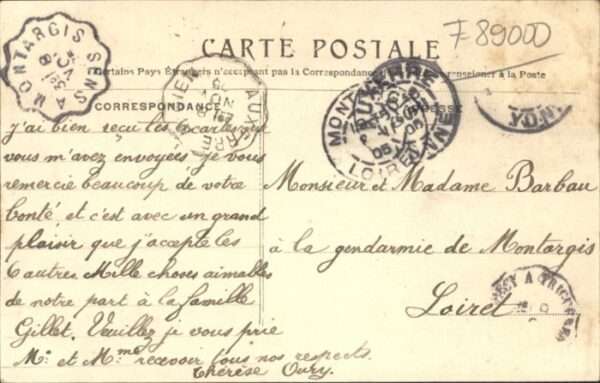 F 89000
CARTE POSTALE
Certains Pays Étrangers n'acceptent pas la Correspondance
renseigner à la Poste
CORRESPONDANCE
MONTARGIS
SENS A
AUXERRE
LOIRET
YONNE
J'ai bien reçu les 6 cartes que
vous m'avez envoyées je vous
remercie beaucoup de votre
bonté et c'est avec un grand
plaisir que j'accepte les
6 autres. Mille choses aimables
de notre part à la famille
Gillet. Veuillez je vous prie
Mr. et Mme recevoir tous nos respects.
Thérèse Oury.
Monsieur et Madame Barbau
à la gendarmie de Montargis
Loiret